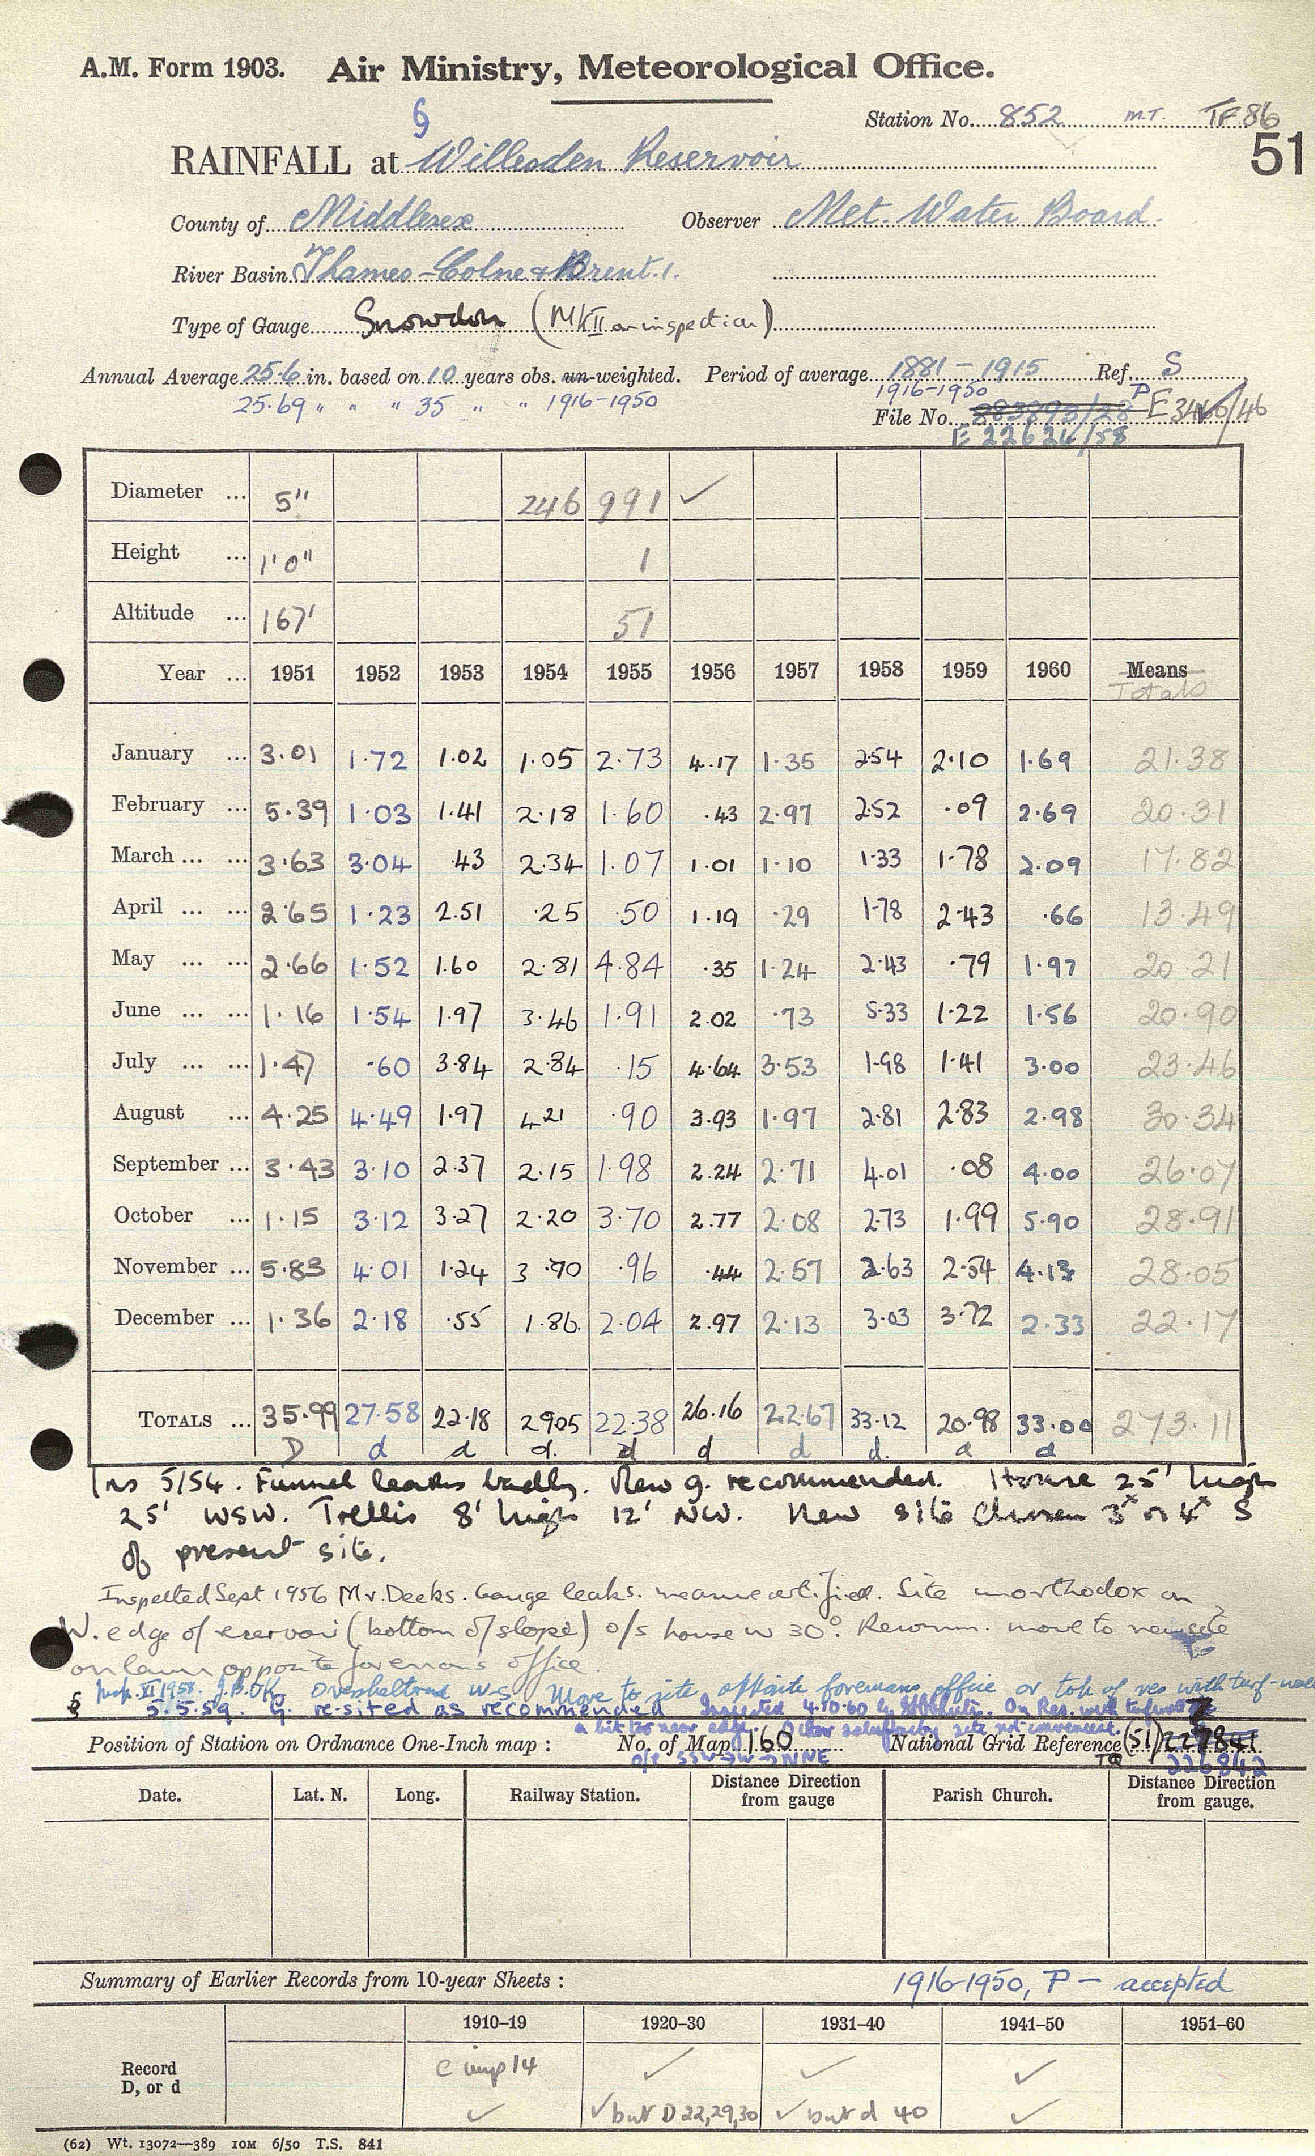 A.M. Form 1903. Air Ministry, Meteorological Office.
Station No. 852 M.T. TF86
51
§
RAINFALL at Willesden Reservoir
County of Middlesex Observer Met. Water Board.
River Basin Thames - Colne & Brent. 1.
Type of Gauge Snowdon (Mk II on inspection)
Annual Average 25.6 in. based on 10 years obs. un-weighted. Period of average 1881 - 1915 Ref. S
25.69 " " " 35 " " 1916-1950 1916-1950 P
File No. 883893/28 E 3466/46
E 22626/58
Diameter ... 5" 246 991 ✓
Height ... 1'0" 1
Altitude ... 167' 51
Year ... 1951 1952 1953 1954 1955 1956 1957 1958 1959 1960 Means
Totals
January ... 3.01 1.72 1.02 1.05 2.73 4.17 1.35 2.54 2.10 1.69 21.38
February ... 5.39 1.03 1.41 2.18 1.60 .43 2.97 2.52 .09 2.69 20.31
March ... ... 3.63 3.04 .43 2.34 1.07 1.01 1.10 1.33 1.78 2.09 17.82
April ... ... 2.65 1.23 2.51 .25 .50 1.19 .29 1.78 2.43 .66 13.49
May ... ... 2.66 1.52 1.60 2.81 4.84 .35 1.24 2.43 .79 1.97 20.21
June ... ... 1.16 1.54 1.97 3.46 1.91 2.02 .73 5.33 1.22 1.56 20.90
July ... ... 1.47 .60 3.84 2.84 .15 4.64 3.53 1.98 1.41 3.00 23.46
August ... 4.25 4.49 1.97 4.21 .90 3.93 1.97 2.81 2.83 2.98 30.34
September ... 3.43 3.10 2.37 2.15 1.98 2.24 2.71 4.01 .08 4.00 26.07
October ... 1.15 3.12 3.27 2.20 3.70 2.77 2.08 2.73 1.99 5.90 28.91
November ... 5.83 4.01 1.24 3.70 .96 .44 2.57 2.63 2.54 4.13 28.05
December ... 1.36 2.18 .55 1.86 2.04 2.97 2.13 3.03 3.72 2.33 22.17
TOTALS ... 35.99 27.58 22.18 29.05 22.38 26.16 22.67 33.12 20.98 33.00 273.11
D d d d. d d d d. d d
Ins 5/54. Funnel leaks badly. New g. recommended. House 25' high
25' WSW. Trellis 8' high 12' NW. New site chosen 3ˣ or 4ˣ S
of present site.
Inspected Sept 1956 Mr. Deeks. Gauge leaks. Site unorthodox on
W. edge of reservoir (bottom of slope) o/s house W 30°. Recomm. move to new site
on lawn opposite foreman's office.
Insp. XI 1958. Oversheltered W.S. Move to site opposite foremans office or top of res with turf-wall
§ 5.5.59. G. re-sited as recommended Inspected 4.10.60 On Res. with turf wall
a bit too near edge. Other site not convenient.
Position of Station on Ordnance One-Inch map : No. of Map 160 National Grid Reference (51) 227841
o/s SSW → W → NNE TQ 226842
Date. Lat. N. Long. Railway Station. Distance Direction from gauge Parish Church. Distance Direction from gauge.
Summary of Earlier Records from 10-year Sheets : 1916-1950, P - accepted
1910–19 1920–30 1931–40 1941–50 1951–60
Record D, or d c imp 14 ✓ ✓ ✓
✓ ✓ but D 22, 29, 30 ✓ but d 40 ✓
(62) Wt. 13072—389 10M 6/50 T.S. 841